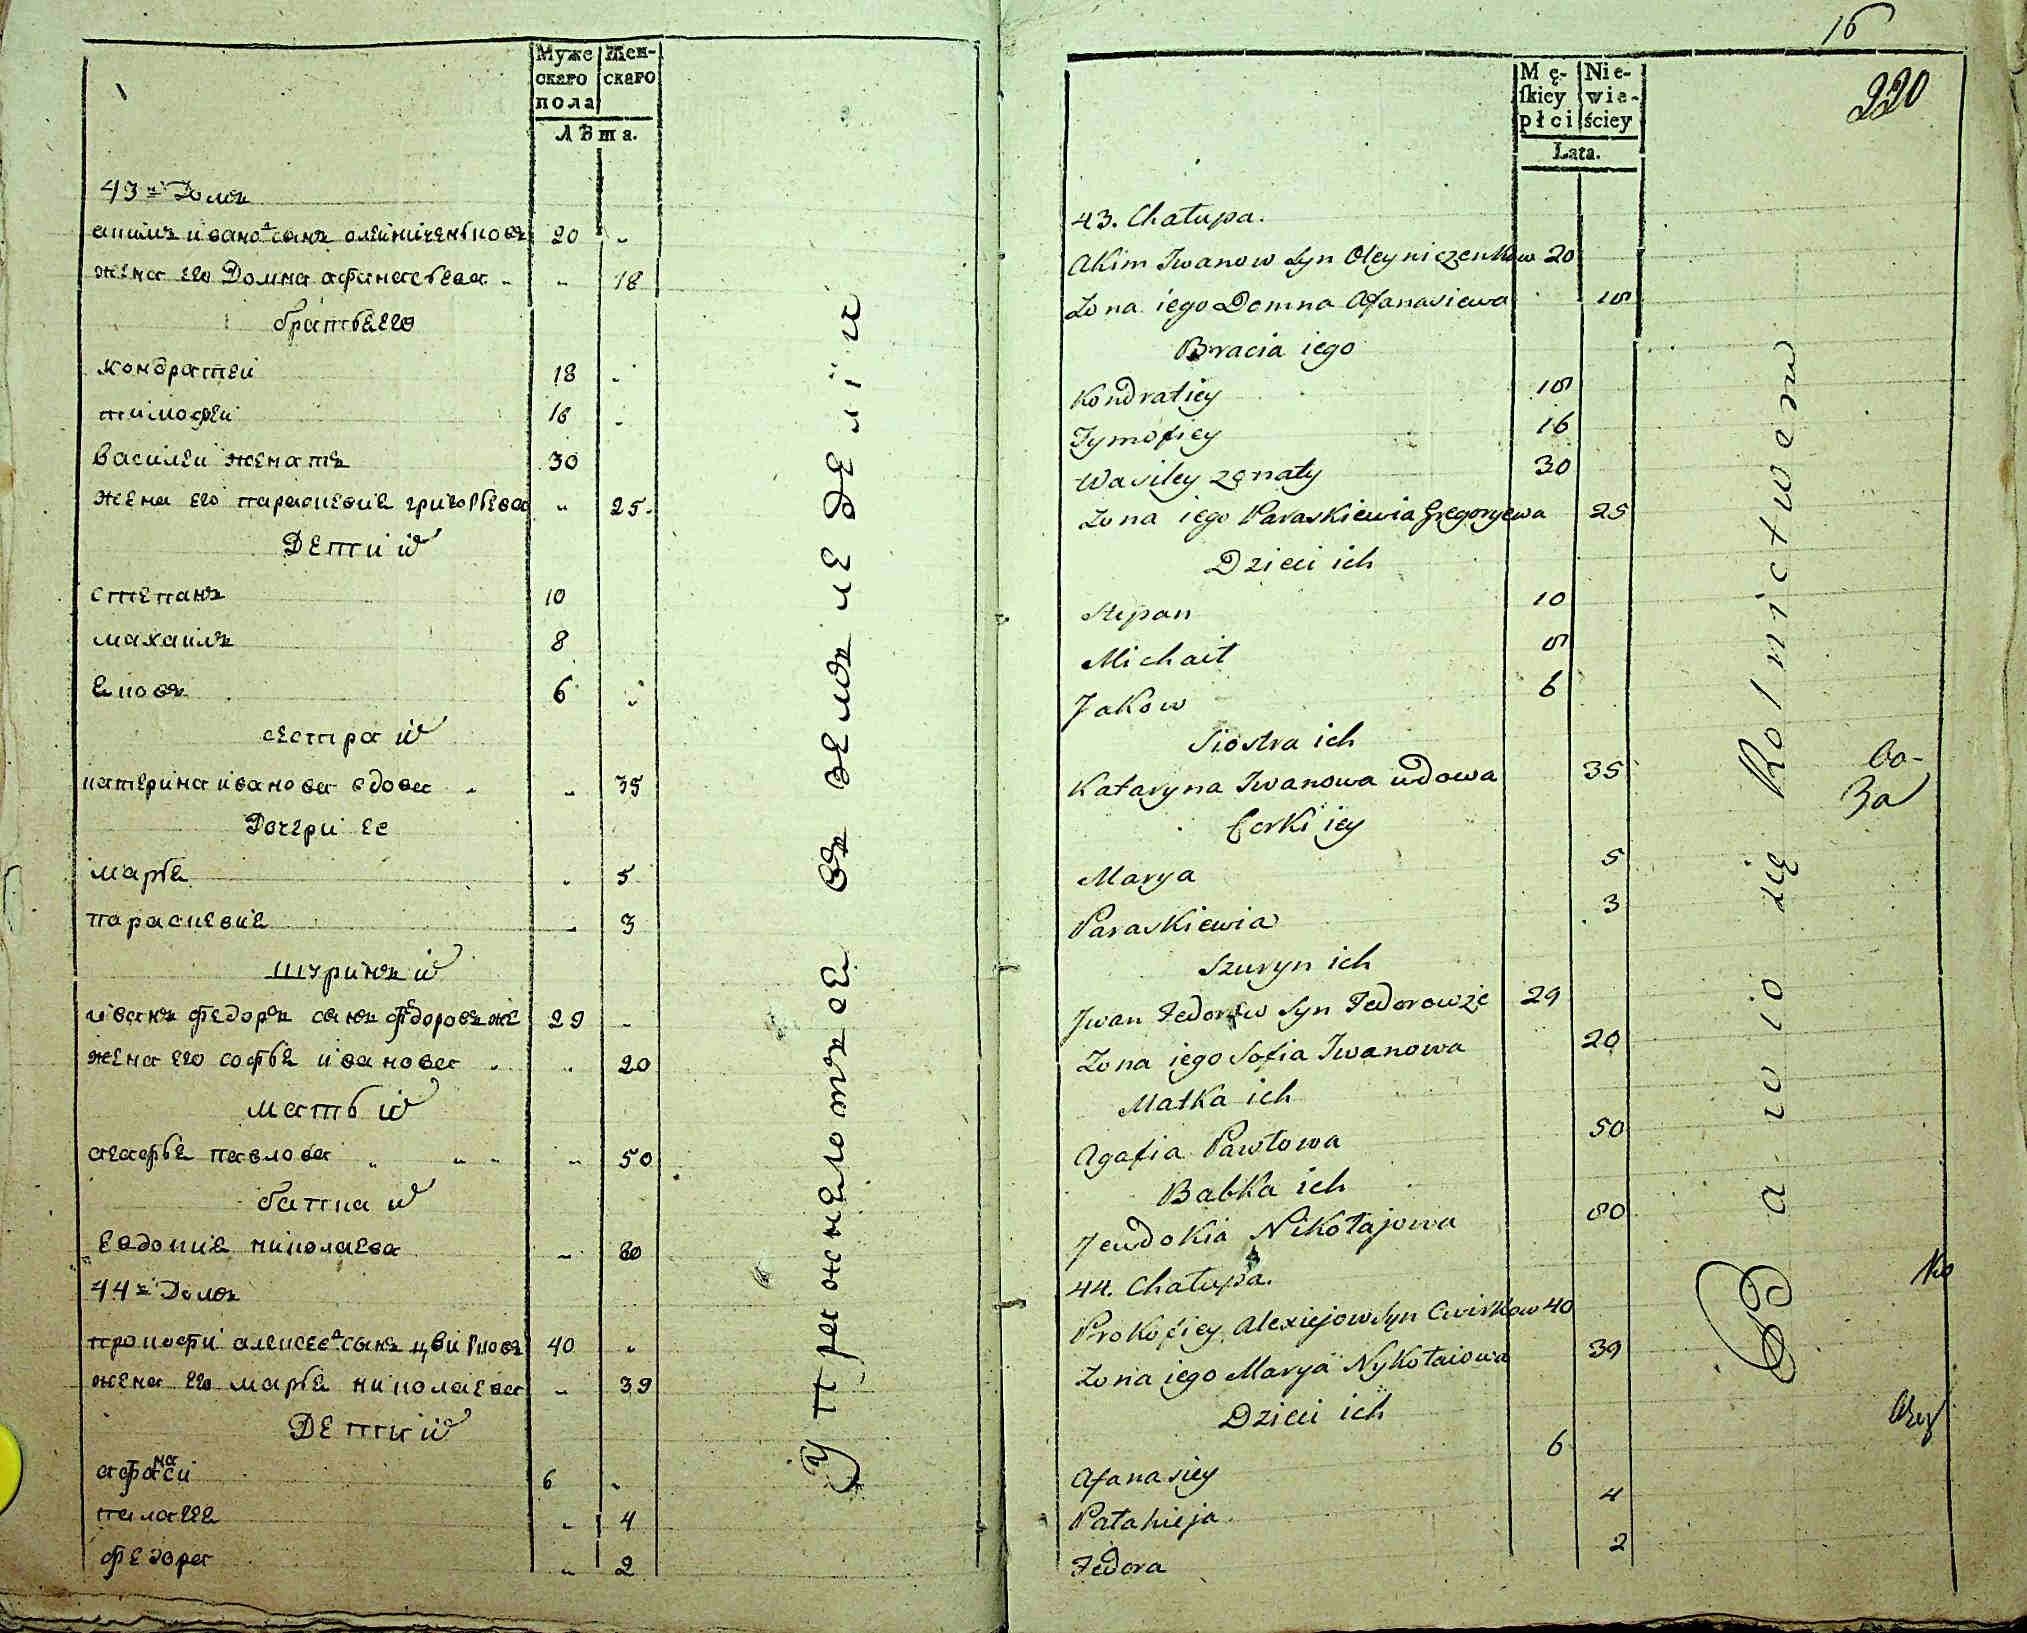 Муже
скаго
пола
Жен-
скаго
Лѣта.
43й Домъ
акимъ иванов сынъ олейниченковъ 20 "
жена его Домна афанасьева " " 18
братья его
кондратей 18 "
тимофеи 16 "
василеи женатъ 30
жена его параскевия григорьева " 25.
Дети их
степанъ 10
махаилъ 8
яковъ 6 "
сестра их
катерина иванова вдова " " 35
Дочери ее
марья " 5
параскевия " 3
шуринъ их
иванъ федоръ сынъ федоровъ же 29 "
жена его софья иванова " " 20
мать их
агафья павлова " " " " 50
бапка их
евдокия николаева " 80
44й Домъ
прокофи алексеев сынъ цвирковъ 40 "
жена его марья николаева " 39
Дети их
афанаси 6 "
палагея " 4
федора " 2
Упражнеются въ земледелiи
16
220
Mę-
ſkiey
płci
Nie-
wie-
ściey
Lata.
43. Chałupa.
Akim Iwanow Syn Oleyniczenkow 20
Żona iego Domna Afanasiewa 18
Bracia iego
Kondratiey 18
Tymofiey 16
Wasiley żęnaty 30
Żona iego Paraskiewia Gregoryewa 25
Dzieci ich
Stepan 10
Michaił 8
Jakow 6
Siostra ich
Kataryna Iwanowa udowa 35
Corki iey
Marya 5
Paraskiewia 3
Szuryn ich
Jwan Fedorow Syn Fedorowże 29
Żona iego Sofia Iwanowa 20
Matka ich
Agafia Pawłowa 50
Babka ich
Jewdokia Nikołajowa 80
44. Chałupa.
Prokofiey Alexiejow Syn Cwirkow 40
Żona iego Marya Nykołaiowa 39
Dzieci ich
Afanasiey 6
Pałahieja 4
Fedora 2
Bawio się Rolnictwem
За